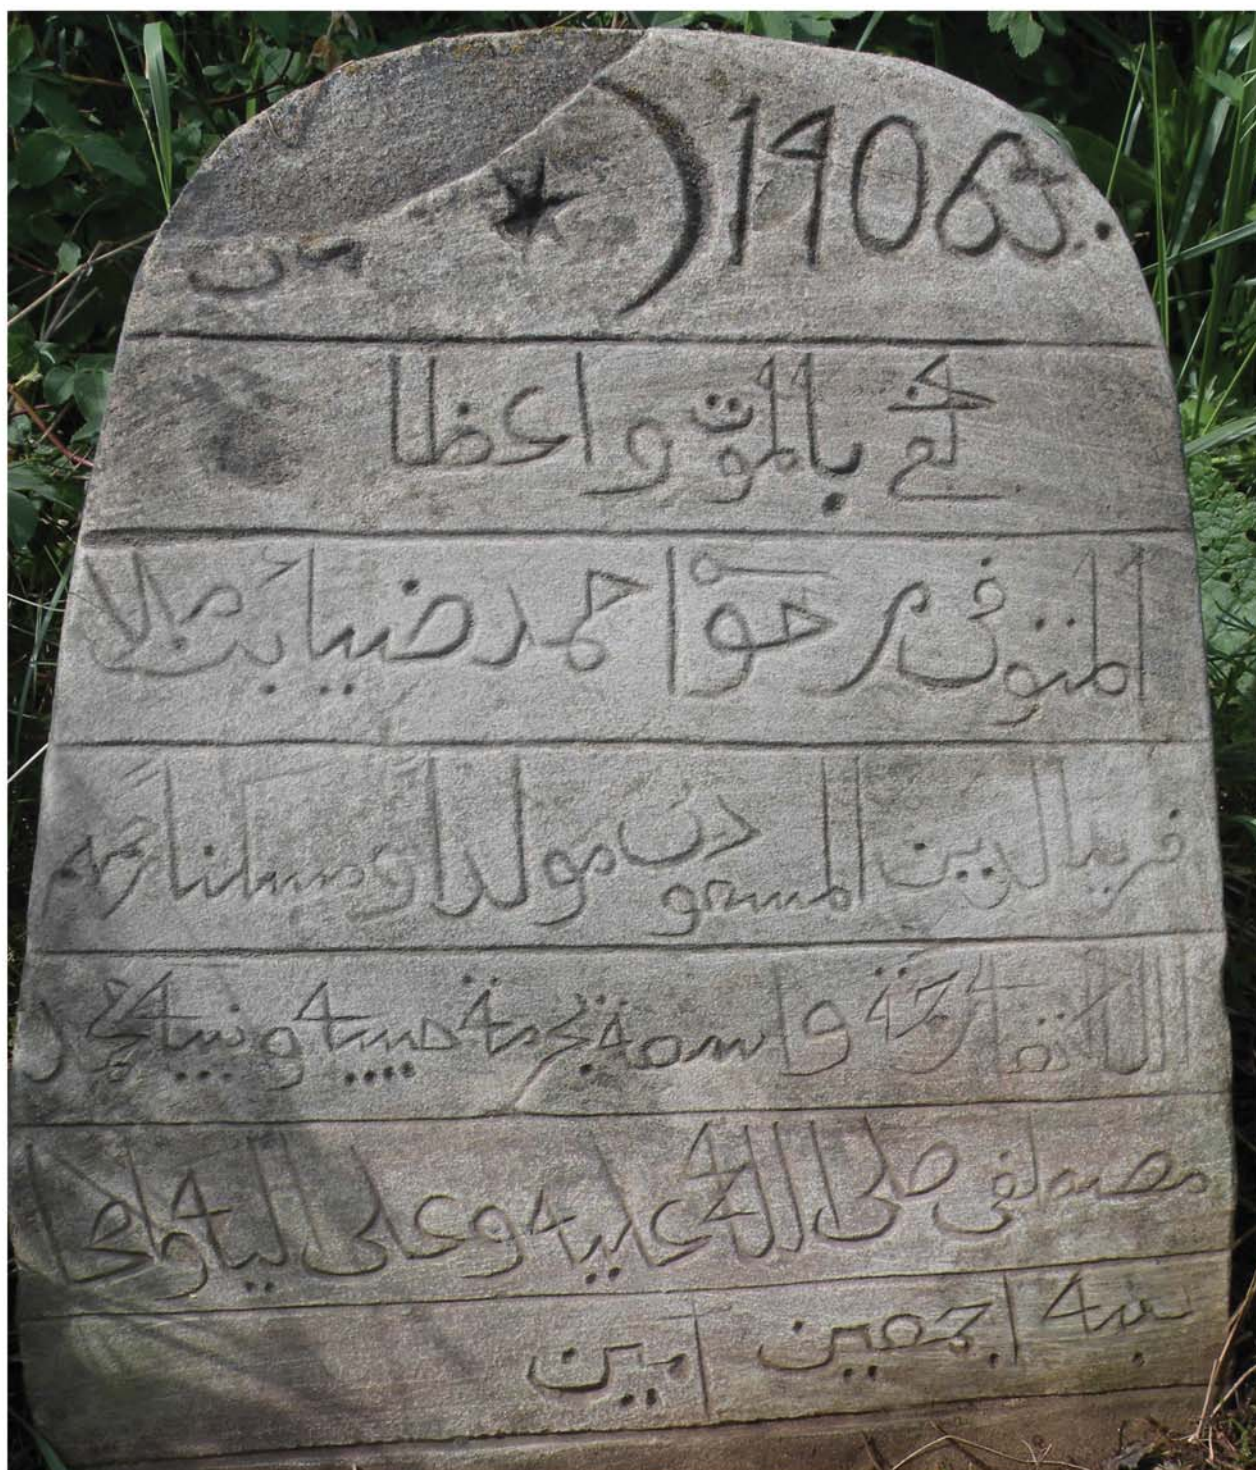 1406
كفى بالموت واعظا
المتوفى مرحوا احمد ضيا بن ملا
المسعودى مولدا ومسكنا رحمه
الله تعالى رحمة واسعة بحرمة حبيبه ونبيه محمد
مصطفى صلى الله عليه وعلى اله واصحا
به اجمعين امين